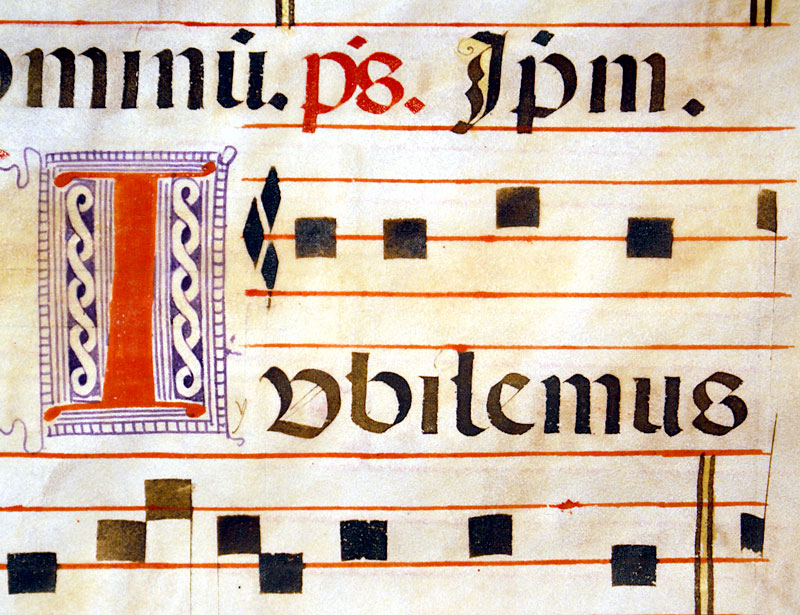 ominū. p̄s. Jp̄m.
IVbilemus